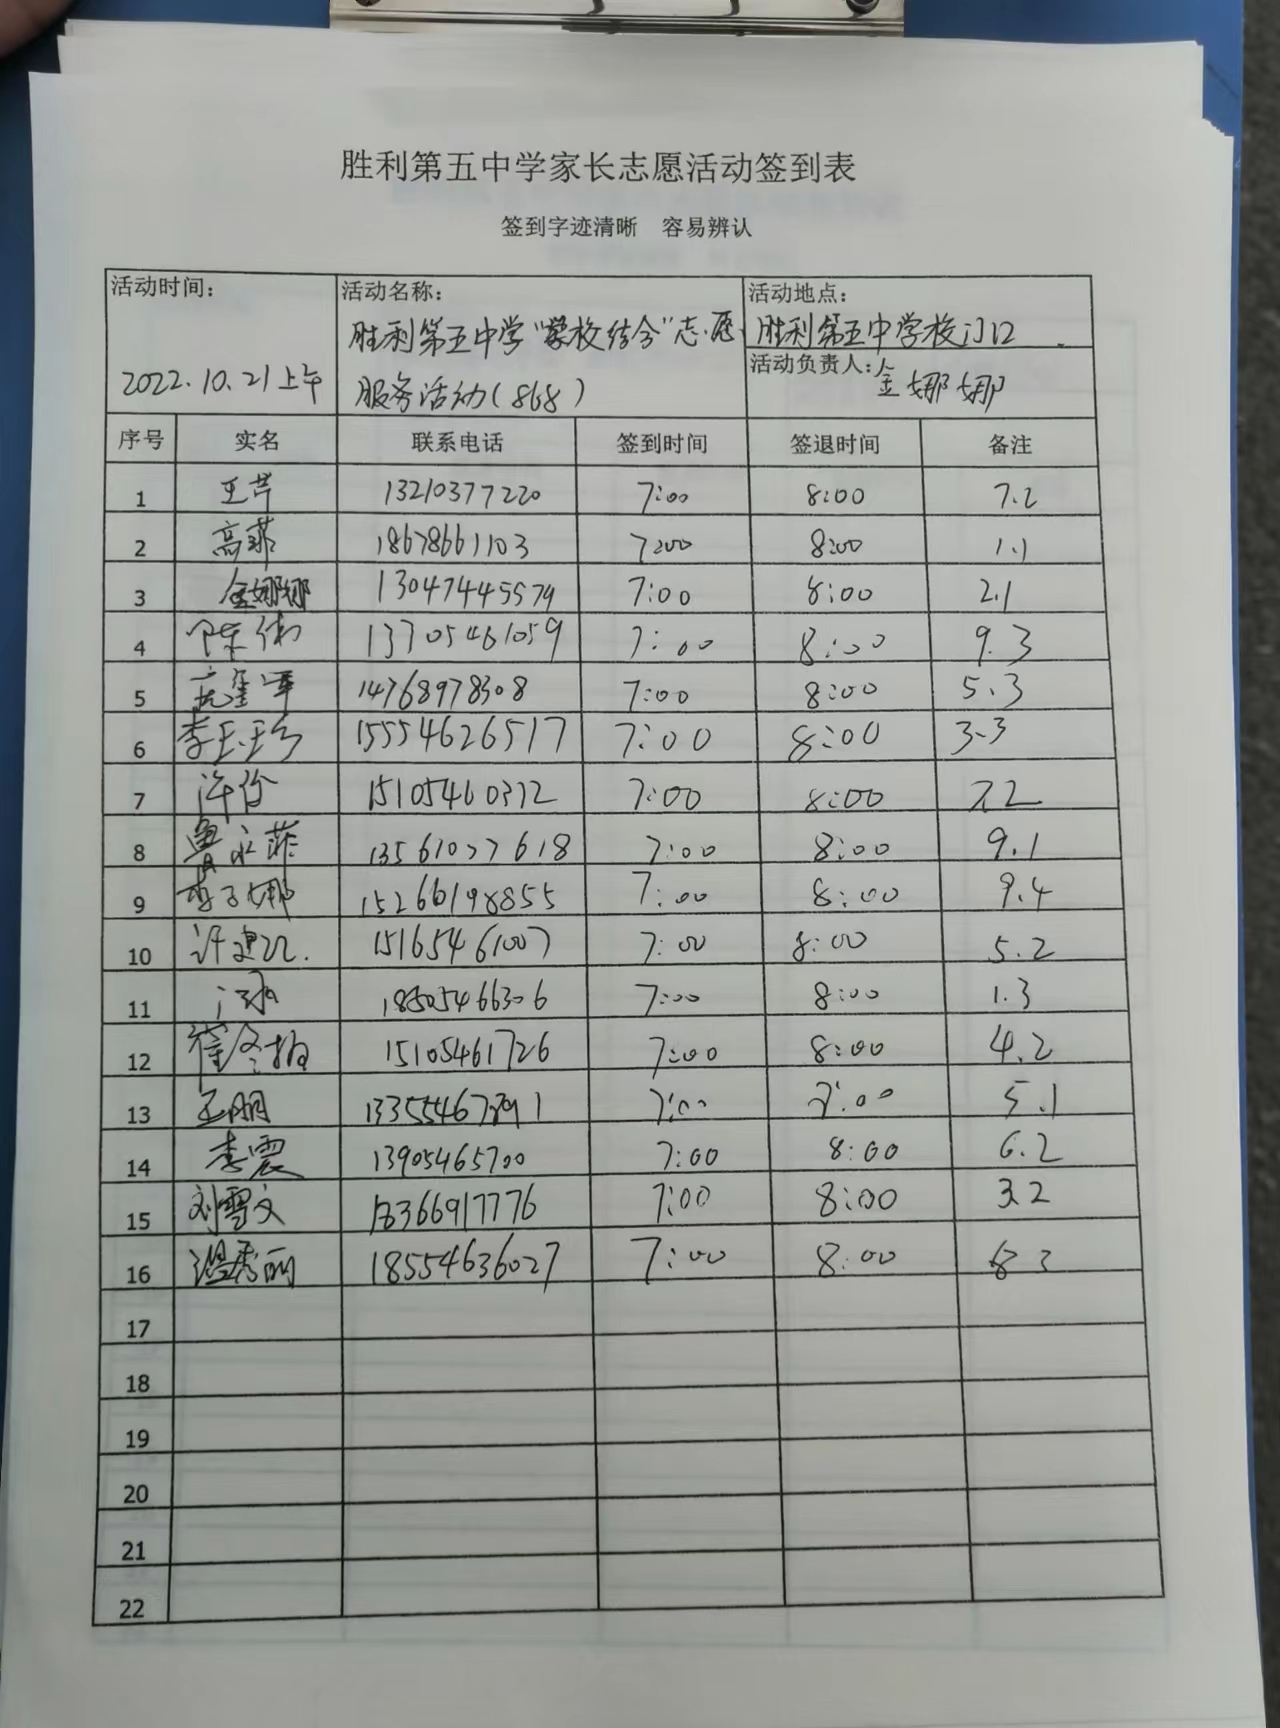 胜利第五中学家长志愿活动签到表
签到字迹清晰 容易辨认
活动时间: 活动名称: 活动地点:
胜利第五中学"学校结合"志愿 胜利第五中学校门口
活动负责人: 金娜娜
2022.10.21上午 服务活动(868)
序号 实名 联系电话 签到时间 签退时间 备注
1 王芹 13210377220 7:00 8:00 7.2
2 高菲 18678661103 7:00 8:00 1.1
3 金娜娜 13047445579 7:00 8:00 2.1
4 陈伟 13705461059 7:00 8:00 9.3
5 14768978308 7:00 8:00 5.3
6 李玉珍 15554626517 7:00 8:00 3.3
7 许俭 15105460372 7:00 8:00 7.2
8 鲁永菲 13561077618 7:00 8:00 9.1
9 李子娜 15266198855 7:00 8:00 9.4
10 许建江. 15165461007 7:00 8:00 5.2
11 18505466306 7:00 8:00 1.3
12 15105461726 7:00 8:00 4.2
13 王朋 7:00 8:00 5.1
14 李震 13905465700 7:00 8:00 6.2
15 刘雪文 18366917776 7:00 8:00 3.2
16 温秀丽 18554636027 7:00 8:00 8.3
17
18
19
20
21
22